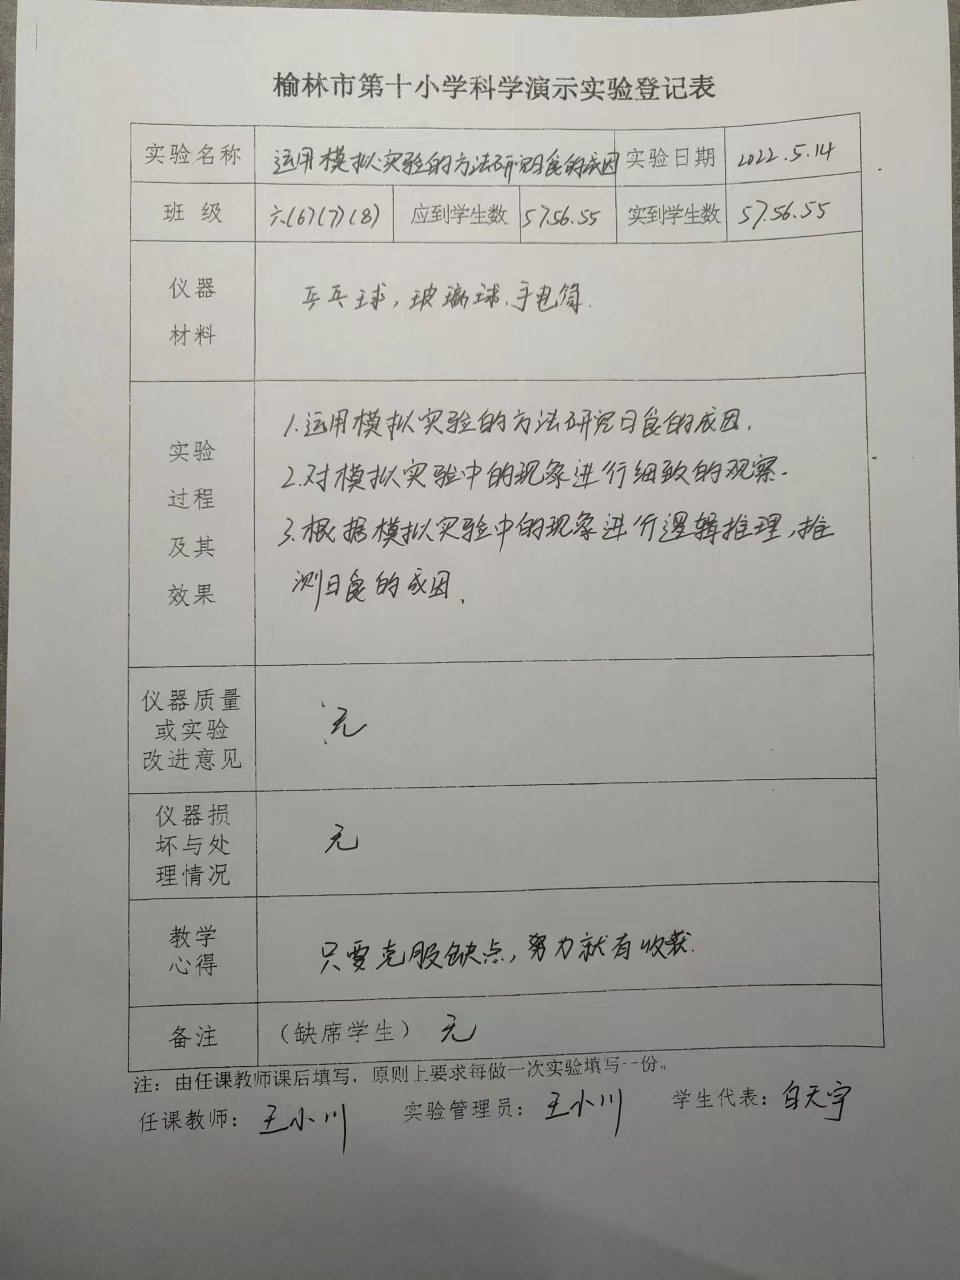 榆林市第十小学科学演示实验登记表
实验名称 运用模拟实验的方法研究日食的成因 实验日期 2022.5.14
班 级 六(6)(7)(8) 应到学生数 57.56.55 实到学生数 57.56.55
仪器
材料
乒乓球，玻璃球、手电筒.
实验
过程
及其
效果
1.运用模拟实验的方法研究日食的成因.
2.对模拟实验中的现象进行细致的观察.
3.根据模拟实验中的现象进行逻辑推理,推
测日食的成因.
仪器质量
或实验
改进意见
无
仪器损
坏与处
理情况
无
教学
心得
只要克服缺点,努力就有收获.
备注 （缺席学生） 无
注：由任课教师课后填写，原则上要求每做一次实验填写一份。
任课教师：王小川 实验管理员：王小川 学生代表：白天宇